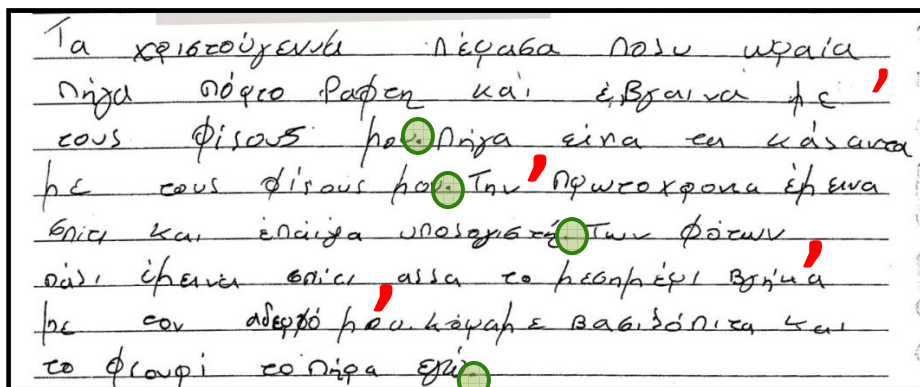 Τα χριστούγεννα πέρασα πολυ ωραία ,
πήγα πόρτο Ραφτη και έβγαινα με
τους φίλους μου. Πήγα , είπα τα κάλαντα
με τους φίλους μου. Την πρωτοχρονια έμεινα
σπιτι και επαίγα υπολογιστή. Των φότων ,
πάλι έμεινα σπίτι , αλλα το μεσημέρι βγήκα
με τον αδερφό μου. κόψαμε βασιλόπιτα και
το φλουρί το πήρα εγώ.